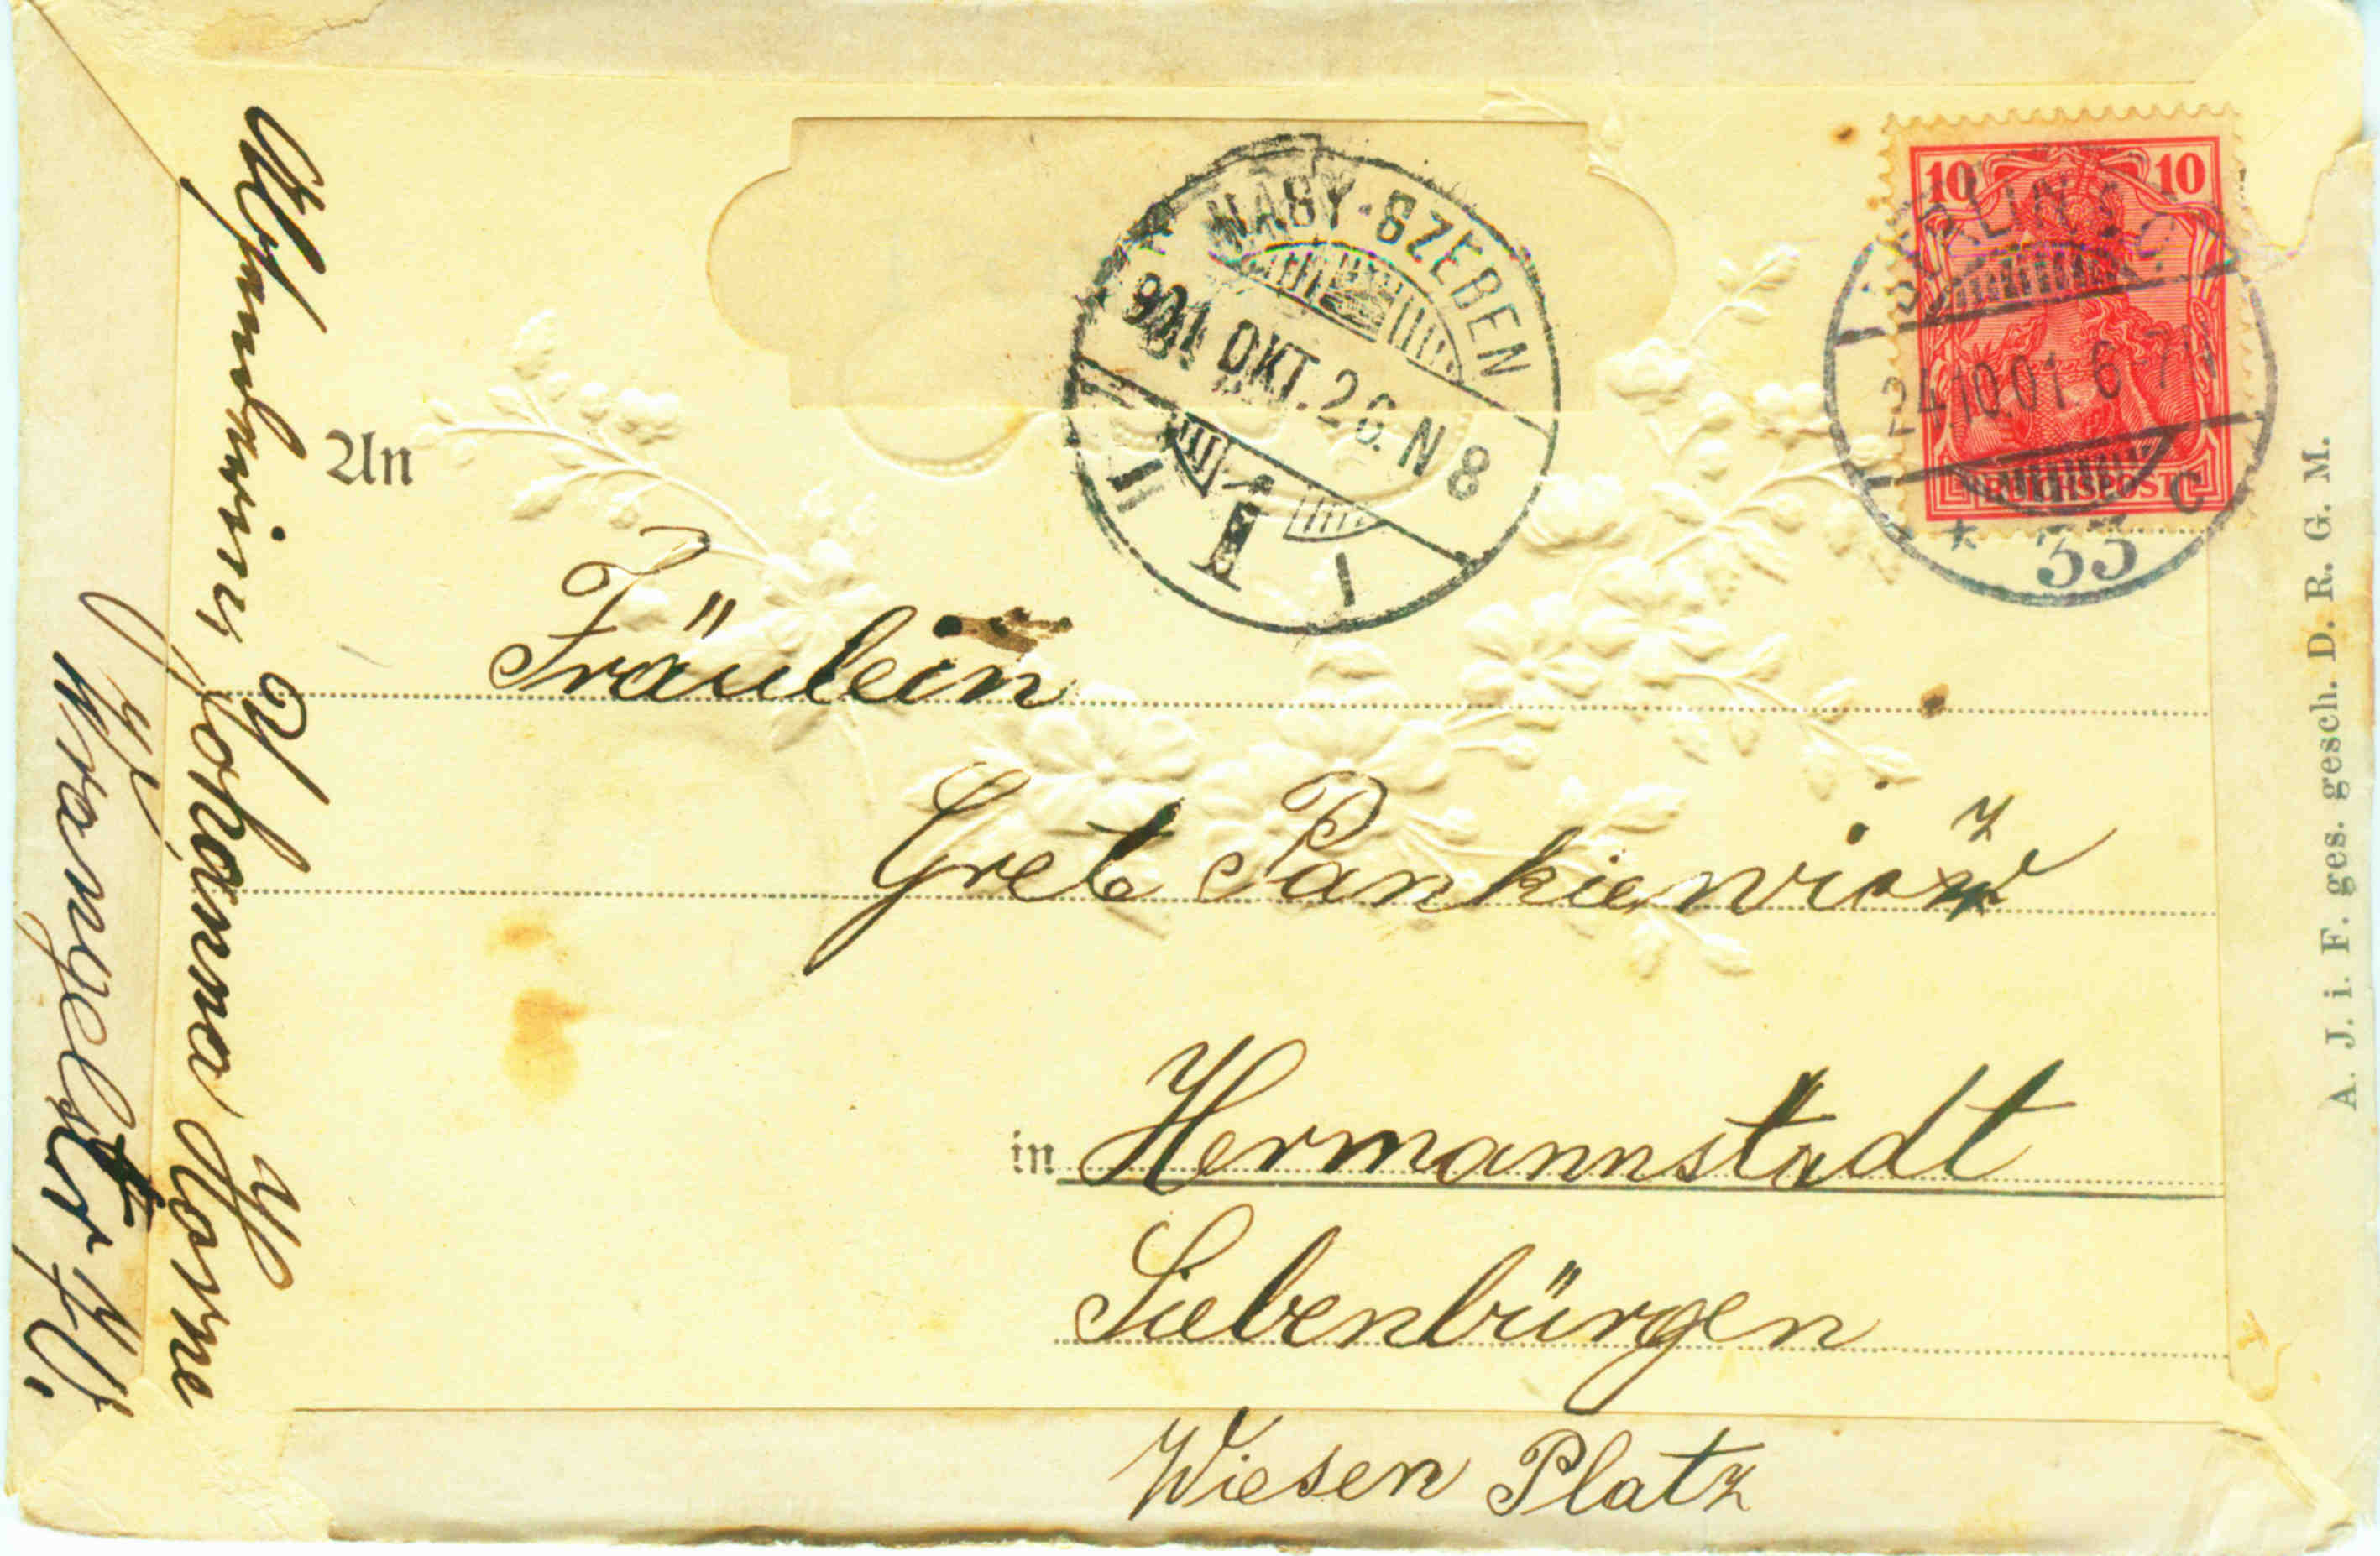 10 10
BERLIN S.O.
24.10.01. 6-7N
* 33 c
REICHSPOST
NAGY-SZEBEN
901 OKT. 26. N 8
I
An
Fräulein
Gret Pankiewicz
in Hermannstadt
Siebenbürgen
Wiesen Platz
Absenderin Johanna Horne
Wrangelstr
A. J. i. F. ges. gesch. D. R. G. M.